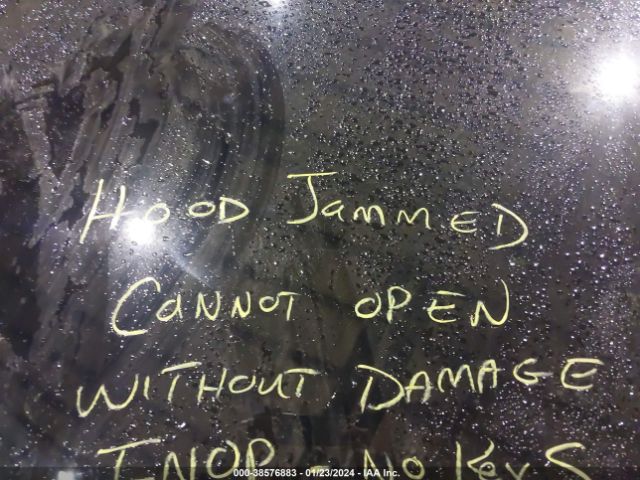 HOOD JammED
CANNOT OPEN
WITHOUT DAMAGE
INOP - NO KeyS
000-38576883 - 01/23/2024 - IAA Inc.